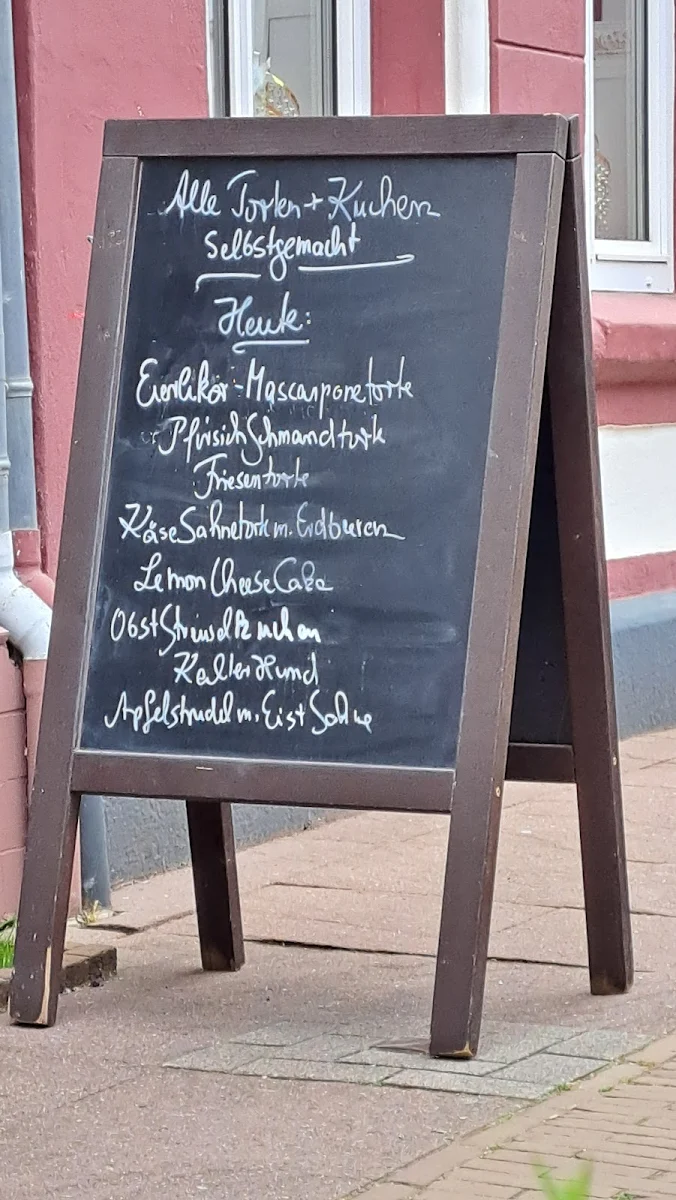 Alle Torten + Kuchen
Selbstgemacht
Heute:
Eierlikör-Mascarponetorte
PfirsichSchmandtorte
Friesentorte
KäseSahnetorte m. Erdbeeren
Lemon CheeseCake
ObstStreuselkuchen
Kalter Hund
Apfelstrudel m. Eis+Sahne